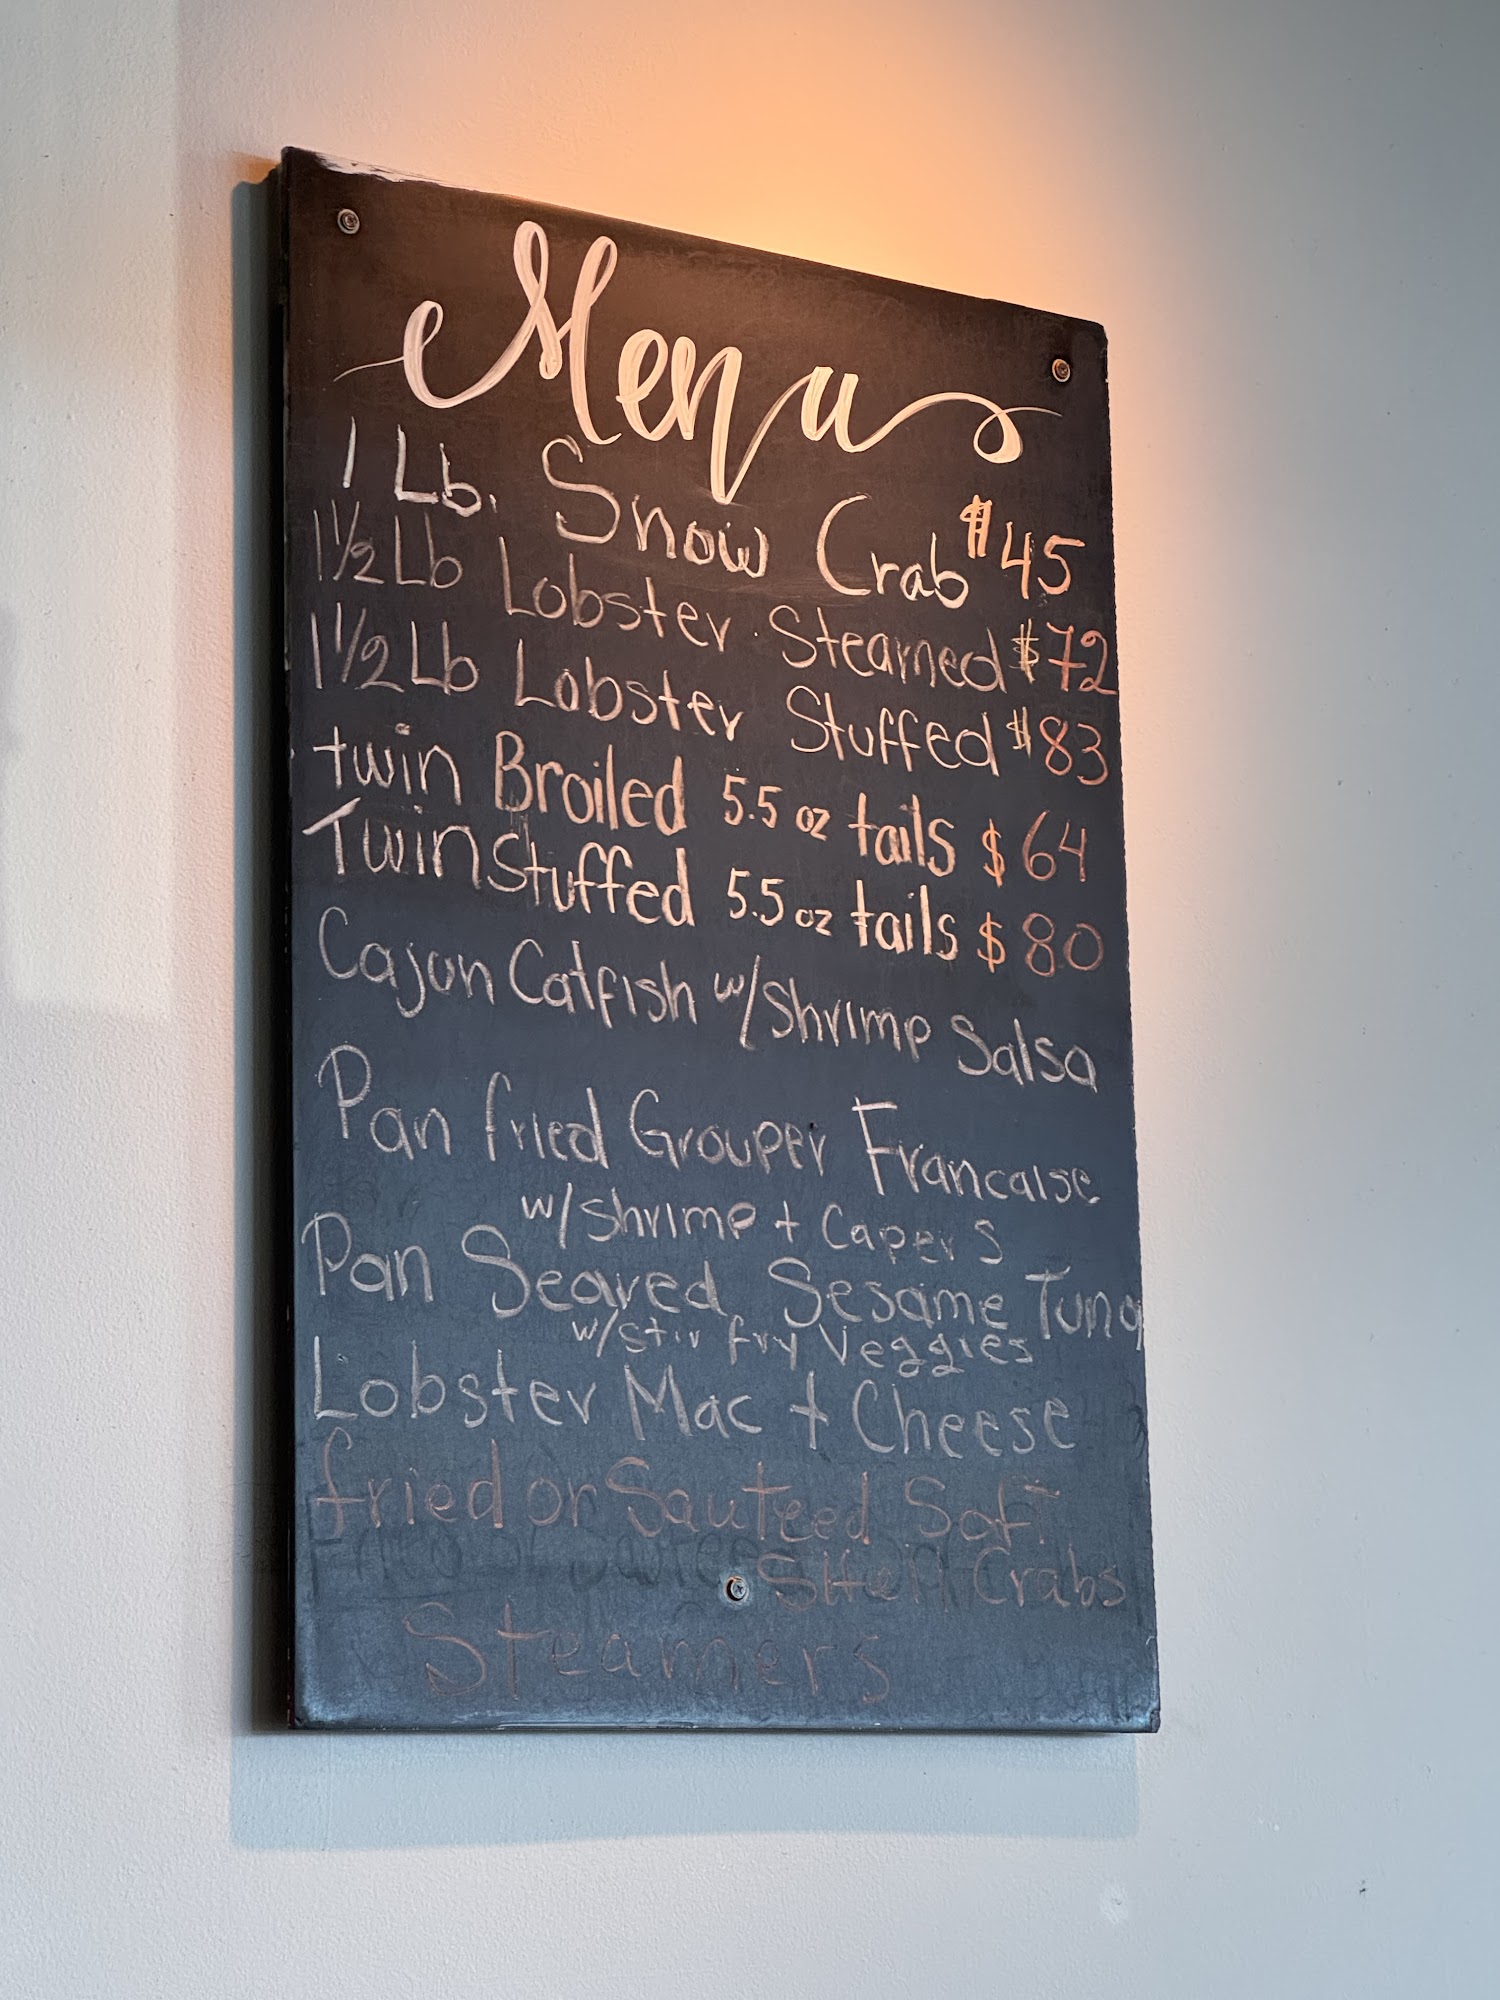 Menu
1 Lb. Snow Crab $45
1 1/2 Lb Lobster Steamed $72
1 1/2 Lb Lobster Stuffed $83
twin Broiled 5.5 oz tails $64
Twin Stuffed 5.5 oz tails $80
Cajun Catfish w/Shrimp Salsa
Pan fried Grouper Francaise
w/Shrimp + Capers
Pan Seared Sesame Tuna
w/stir fry Veggies
Lobster Mac + Cheese
fried or Sauteed Soft
Shell Crabs
Steamers